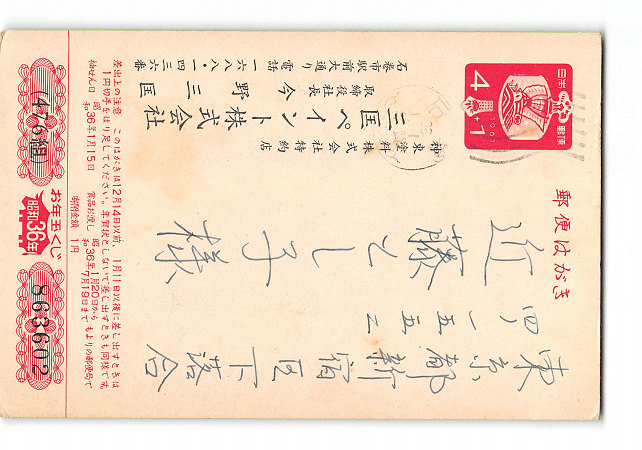 郵便はがき
日本郵便
4+1
1961
東京都新宿区下落合
四ノ一五五三
近藤とし子様
神東塗料株式会社特約店
三国ペイント株式会社
取締役社長 今野三国
石巻市駅前大通り
電話 一六八八・一四三六番
差出上の注意 このはがきは12月14日以前、1月11日以後に差し出すときは
1円切手をはり足してください。年賀状としないで差し出すときも同様です。
抽せん日 昭和36年1月15日
賞品お渡し 昭和36年1月20日から7月19日まで もよりの郵便局で
寄附金額 1円
(476組)
お年玉くじ
昭和36年
863602